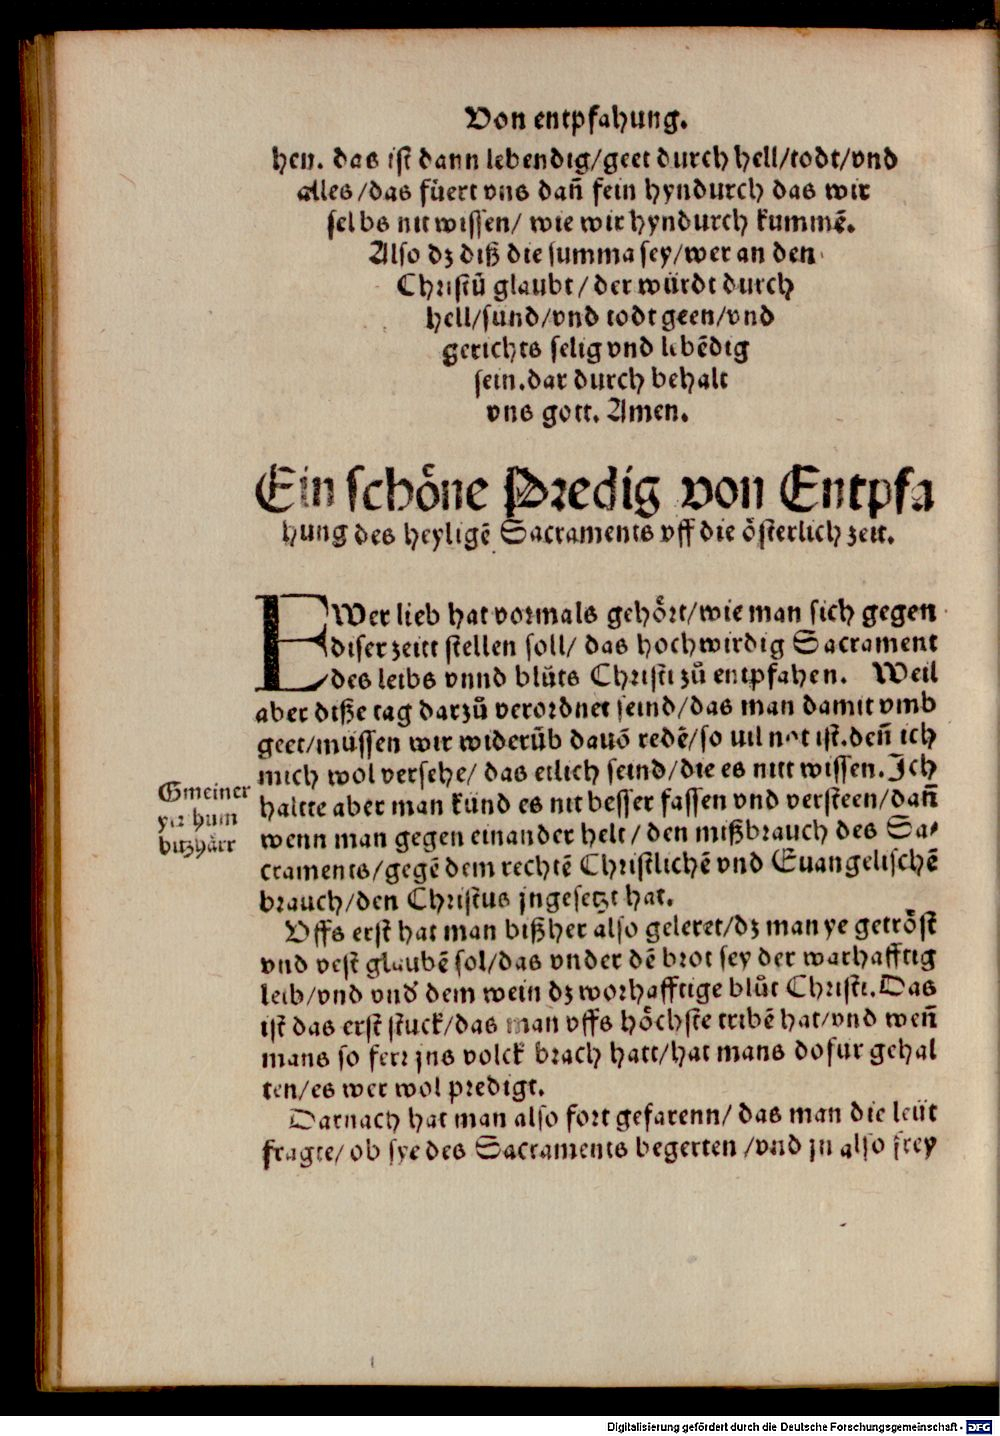 Von entpfahung.
hen. das ist dann lebendig/geet durch hell/todt/vnd
alles/das füert vns dañ fein hyndurch das wir
selbs nit wissen/ wie wir hyndurch kummẽ.
Also dz diß die summa sey/wer an den
Christũ glaubt/ der würdt durch
hell/sünd/vnd todt geen/vnd
gerichts selig vnd lebẽdig
sein.dar durch behalt
vns gott. Amen.
Ein schöne Predig von Entpfa
hung des heyligẽ Sacraments vff die österlich zeit.
EWer lieb hat vormals gehört/wie man sich gegen
diser zeitt stellen soll/ das hochwirdig Sacrament
des leibs vnnd blůts Christi zů entpfahen. Weil
aber diße tag darzů verordnet seind/das man damit vmb
geet/müssen wir widerũb dauõ redẽ/so uil not ist.deñ ich
mich wol versehe/ das etlich seind/die es nitt wissen. Ich
haltte aber man künd es nit besser fassen vnd versteen/dañ
wenn man gegen einander helt/ den mißbrauch des Sa-
craments/gegẽ dem rechtẽ Christlichẽ vnd Euangelischẽ
brauch/den Christus jngesetzt hat.
Gmeiner
hum
bitzhärr
Vffs erst hat man bißher also geleret/dz man ye getröst
vnd vest glaubẽ sol/das vnder dẽ brot sey der warhafftig
leib/vnd vnd̾ dem wein dz worhafftige blůt Christi. Das
ist das erst stuck/das man vffs höchste tribẽ hat/vnd weñ
mans so ferr jns volck brach hatt/hat mans dofur gehal
ten/es wer wol predigt.
Darnach hat man also fort gefarenn/ das man die leüt
fragte/ ob sye des Sacraments begerten /vnd jn also frey
Digitalisierung gefördert durch die Deutsche Forschungsgemeinschaft - DFG